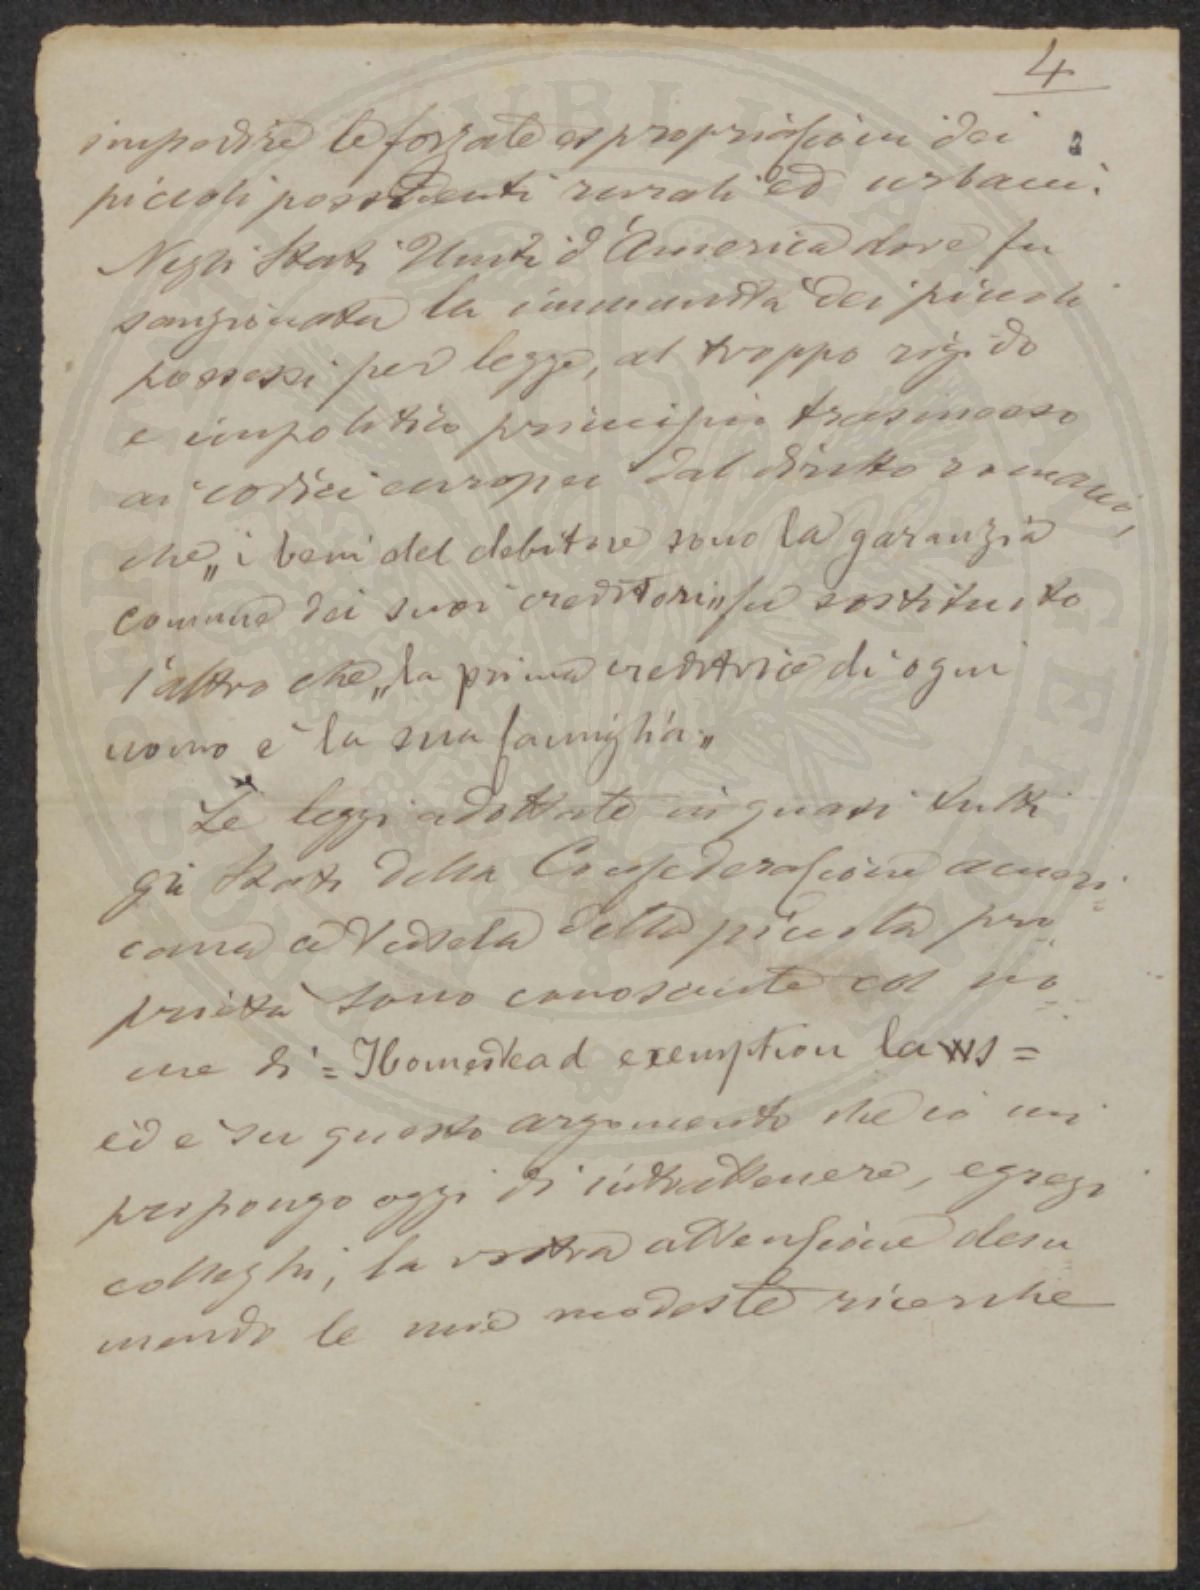 4
impedire le forzate espropriazioni dei
piccoli possidenti rurali ed urbani.
Negli Stati Uniti d'America dove fu
sanzionata la immunità dei piccoli
possessi per legge, al troppo rigido
e impolitico principio trasmesso
ai codici europei dal diritto romano,
che „i beni del debitore sono la garanzia
comune dei suoi creditori„ fu sostituito
l'altro che „la prima creditrice di ogni
uomo è la sua famiglia„
Le leggi adottate in quasi tutti
gli Stati della Confederazione ameri
cana a tutela della piccola pro
prietà sono conosciute col no
me di = Homestead exemption laws =
ed è su questo argomento che io mi
propongo oggi di intrattenere, egregi
colleghi, la vostra attenzione desu
mendo le mie modeste ricerche